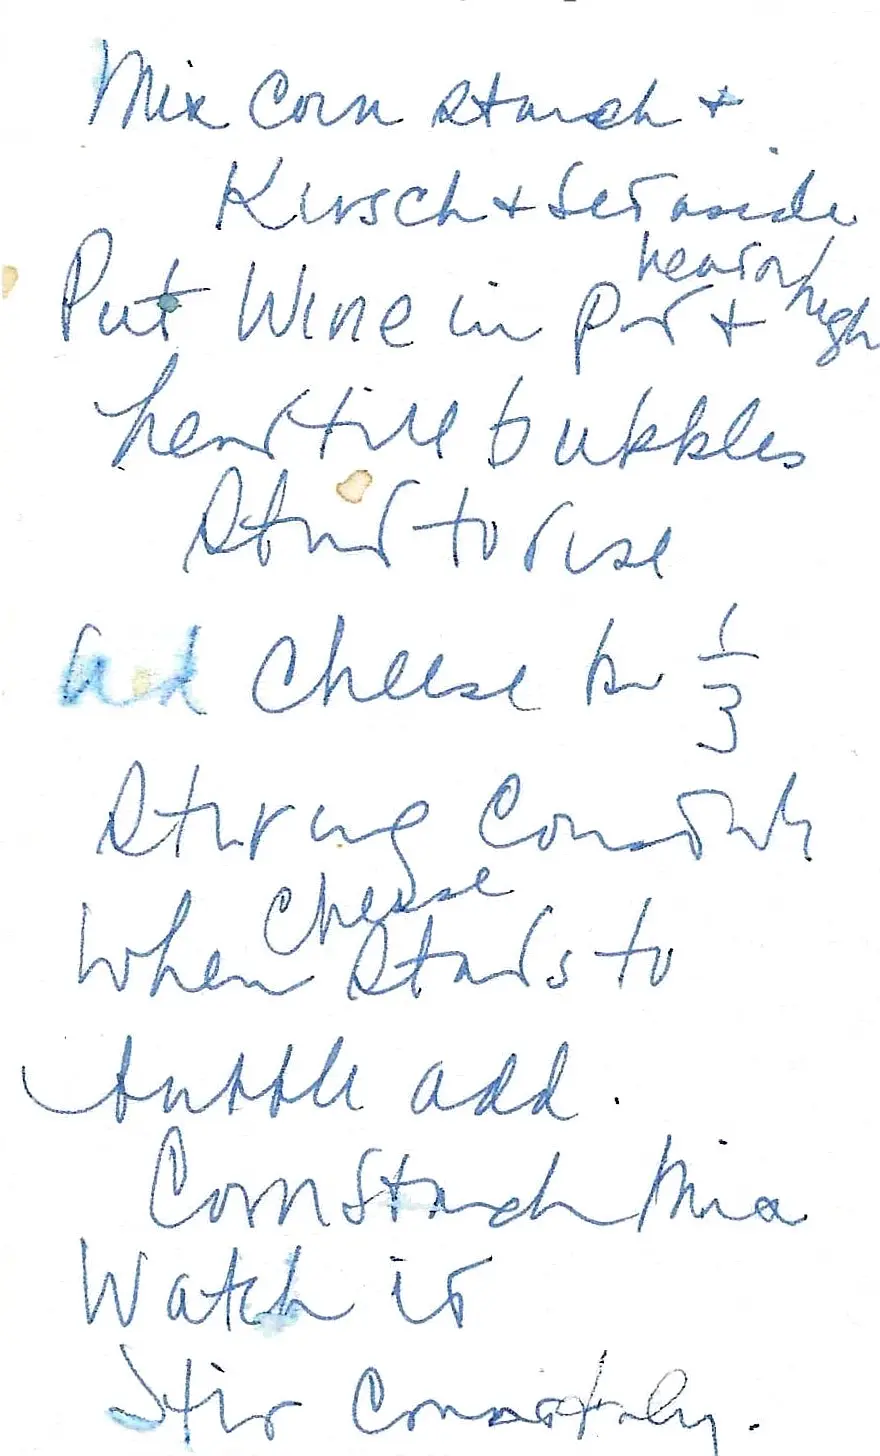 Mix Corn Starch +
Kirsch + Set aside
Put Wine in pot +
heat on high
heat till bubbles
Start to rise
ad Cheese in 1/3
Stiring Constantly
When Cheese Starts to
bubble add.
Corn Starch Mix
Watch it
Stir Constantly.